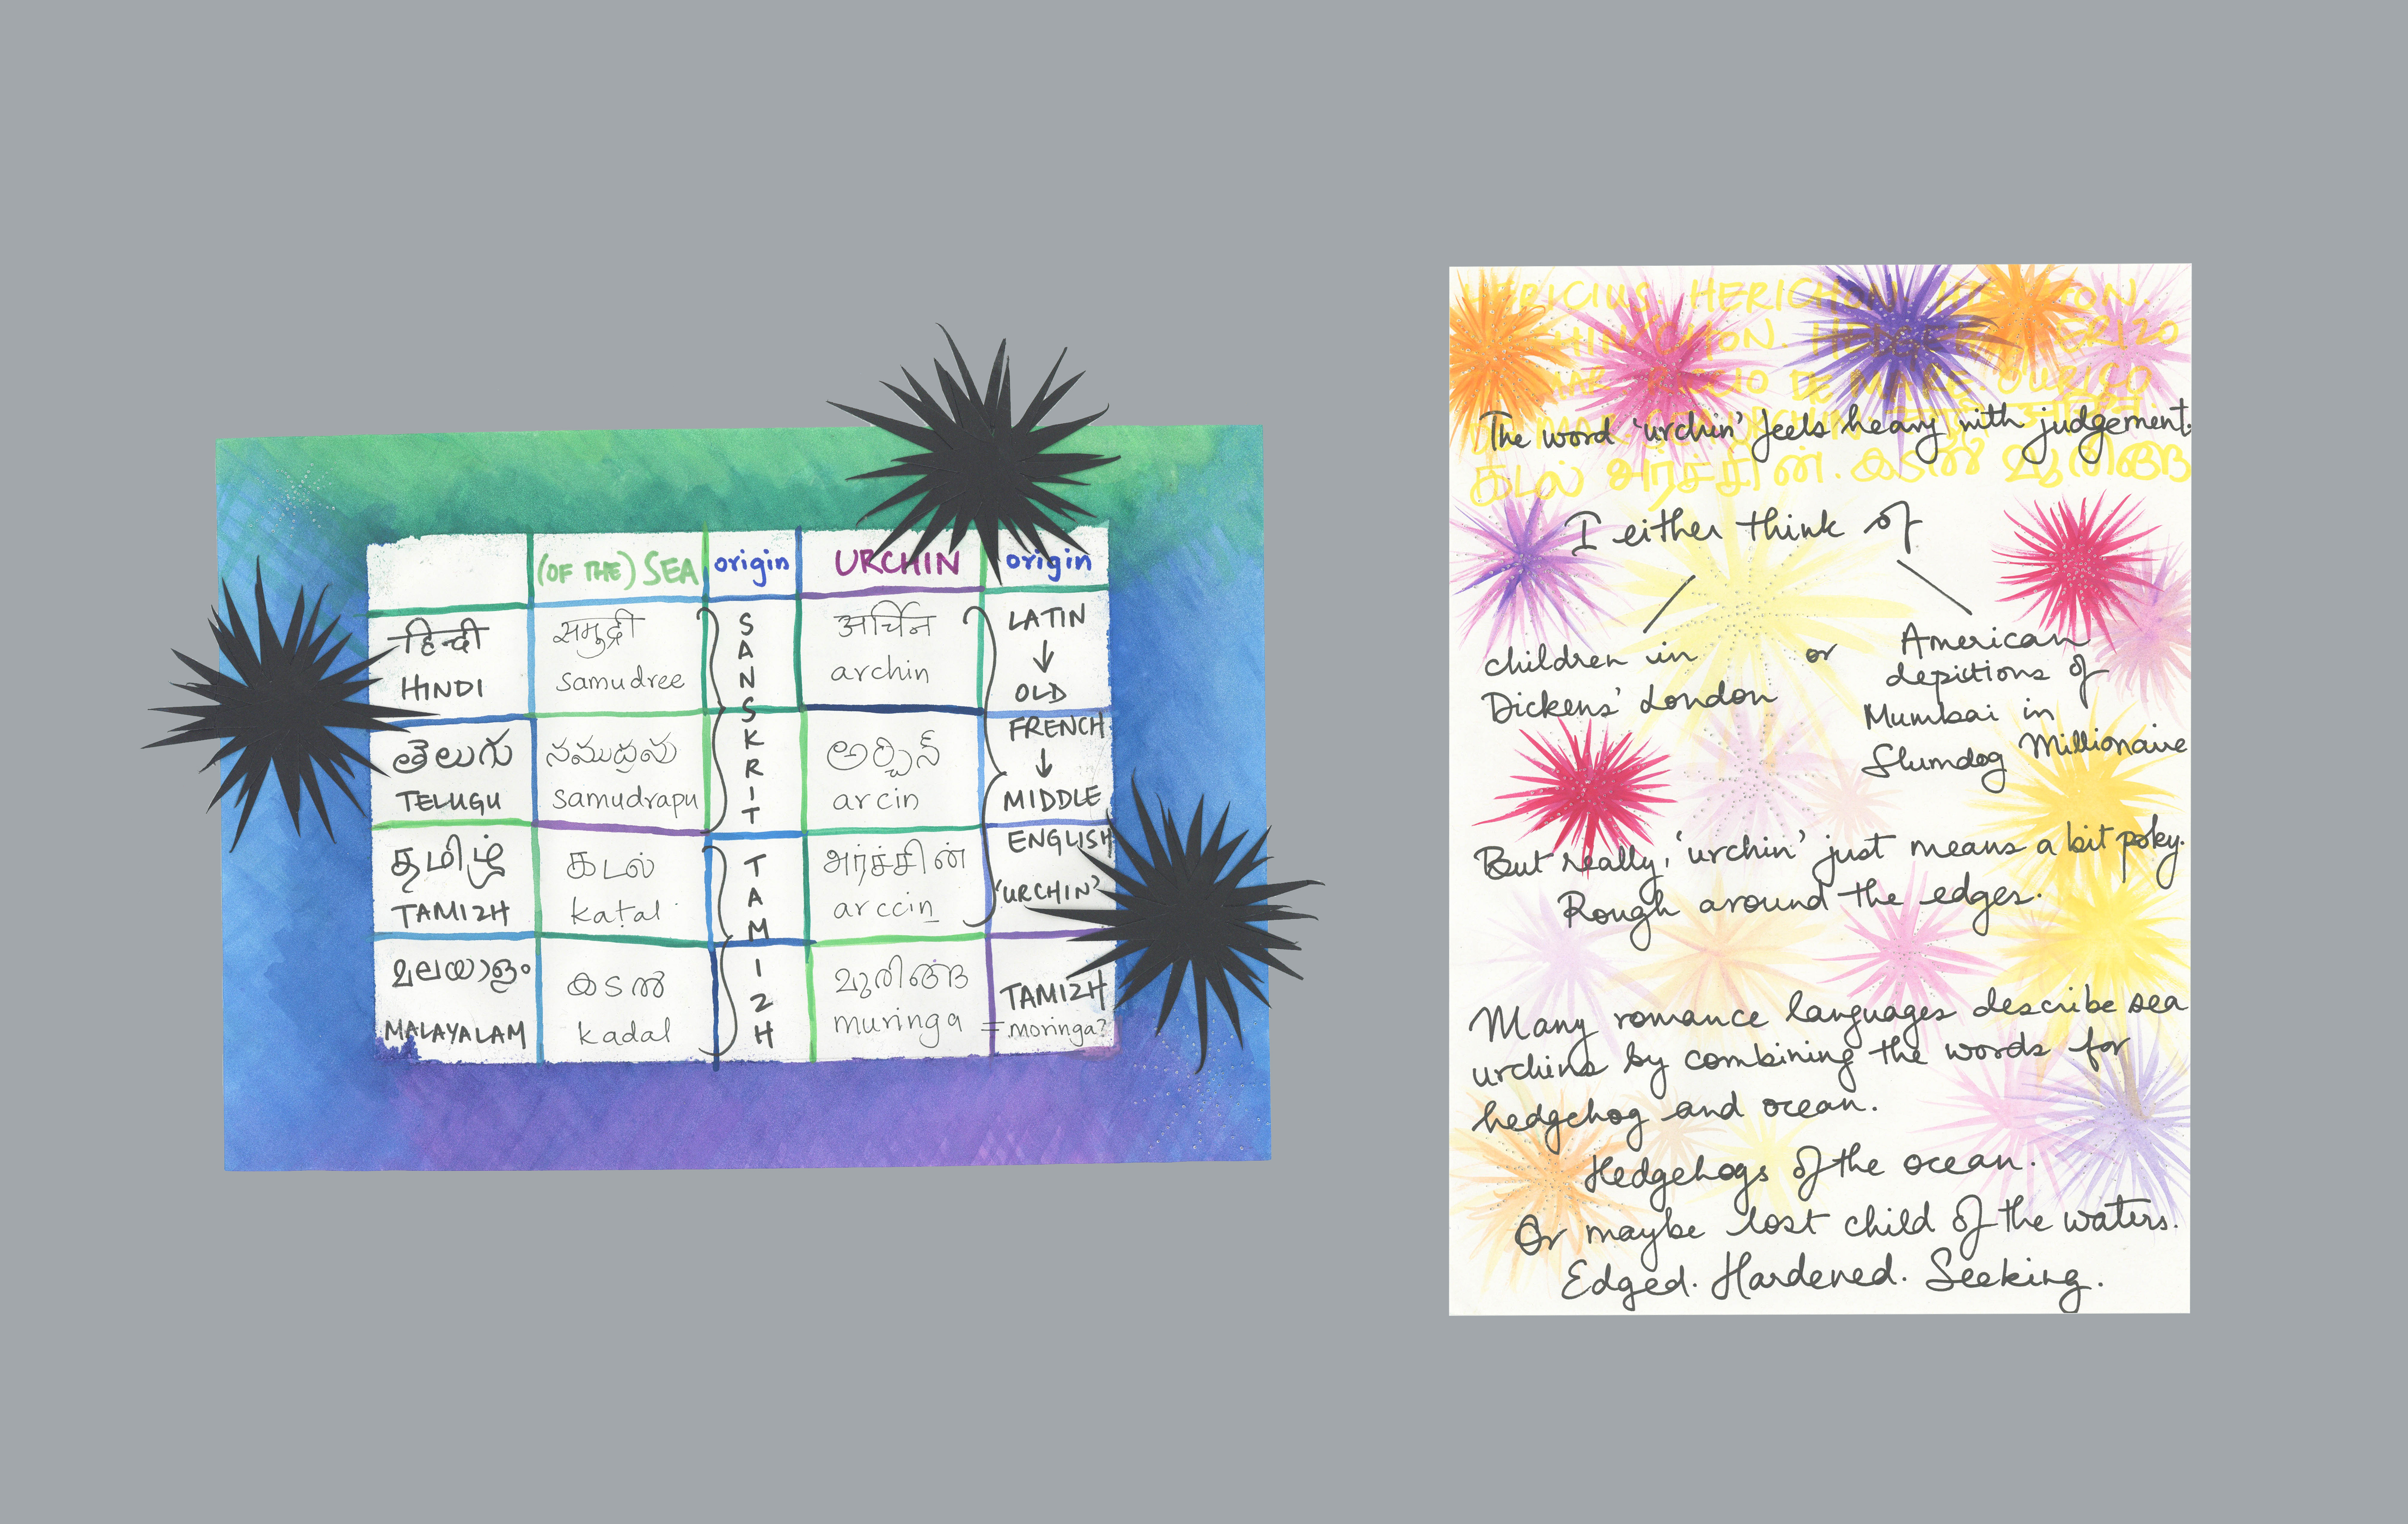 (OF THE) SEA origin URCHIN origin
हिन्दी समुद्री अर्चिन
HINDI samudree archin
తెలుగు సముద్రపు అర్చిన్
TELUGU samudrapu arcin
SANSKRIT
தமிழ் கடல் அர்ச்சின்
TAMIZH kaṭal arccin
LATIN
↓
OLD
FRENCH
↓
MIDDLE
ENGLISH
'URCHIN'
മലയാളം കടൽ
MALAYALAM kadal muringa
TAMIZH
TAMIZH
= moringa?
HERICHON
DE
கடல் அர்ச்சின். കടൽ
The word 'urchin' feels heavy with judgement.
I either think of
children in
Dickens' London
or
American
depictions of
Mumbai in
Slumdog Millionaire
But really, 'urchin' just means a bit poky.
Rough around the edges.
Many romance languages describe sea
urchins by combining the words for
hedgehog and ocean.
Hedgehogs of the ocean.
Or maybe lost child of the waters.
Edged. Hardened. Seeking.